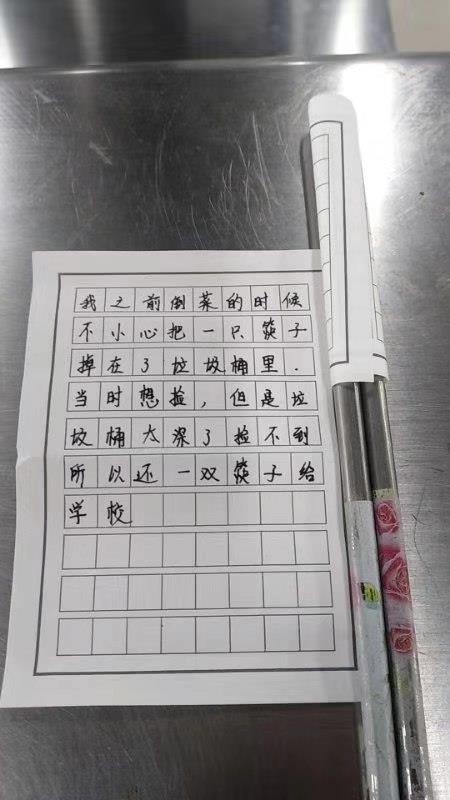 我之前倒菜的时候
不小心把一只筷子
掉在了垃圾桶里.
当时想捡，但是垃
圾桶太深了捡不到
所以还一双筷子给
学校